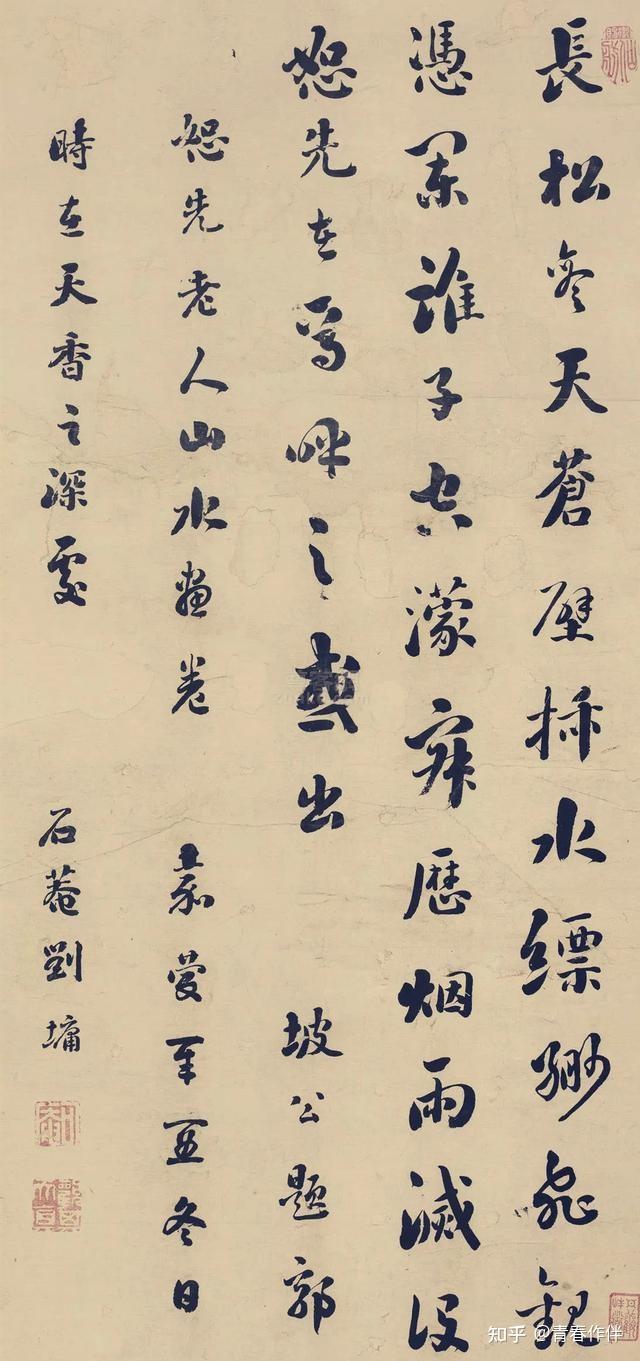 長松參天蒼壁插水縹緲飛觀
憑闌誰子空濛寂歷烟雨滅没
恕先在焉呼之或出 坡公題郭
恕先老人山水畫卷 嘉慶冬日
時在天香之深處 石菴劉墉
知乎 @青春作伴